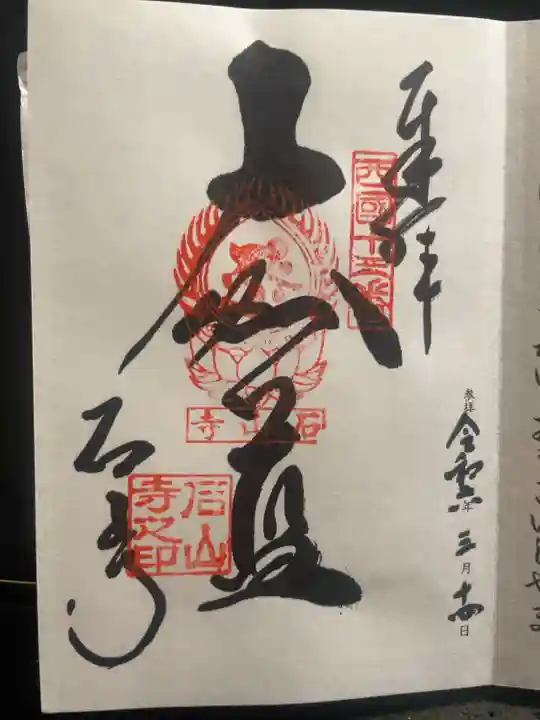 奉拝
西國十三番
大伽藍
石山寺
石山寺
石山寺之印
參拝 令和 年 三月 十四日